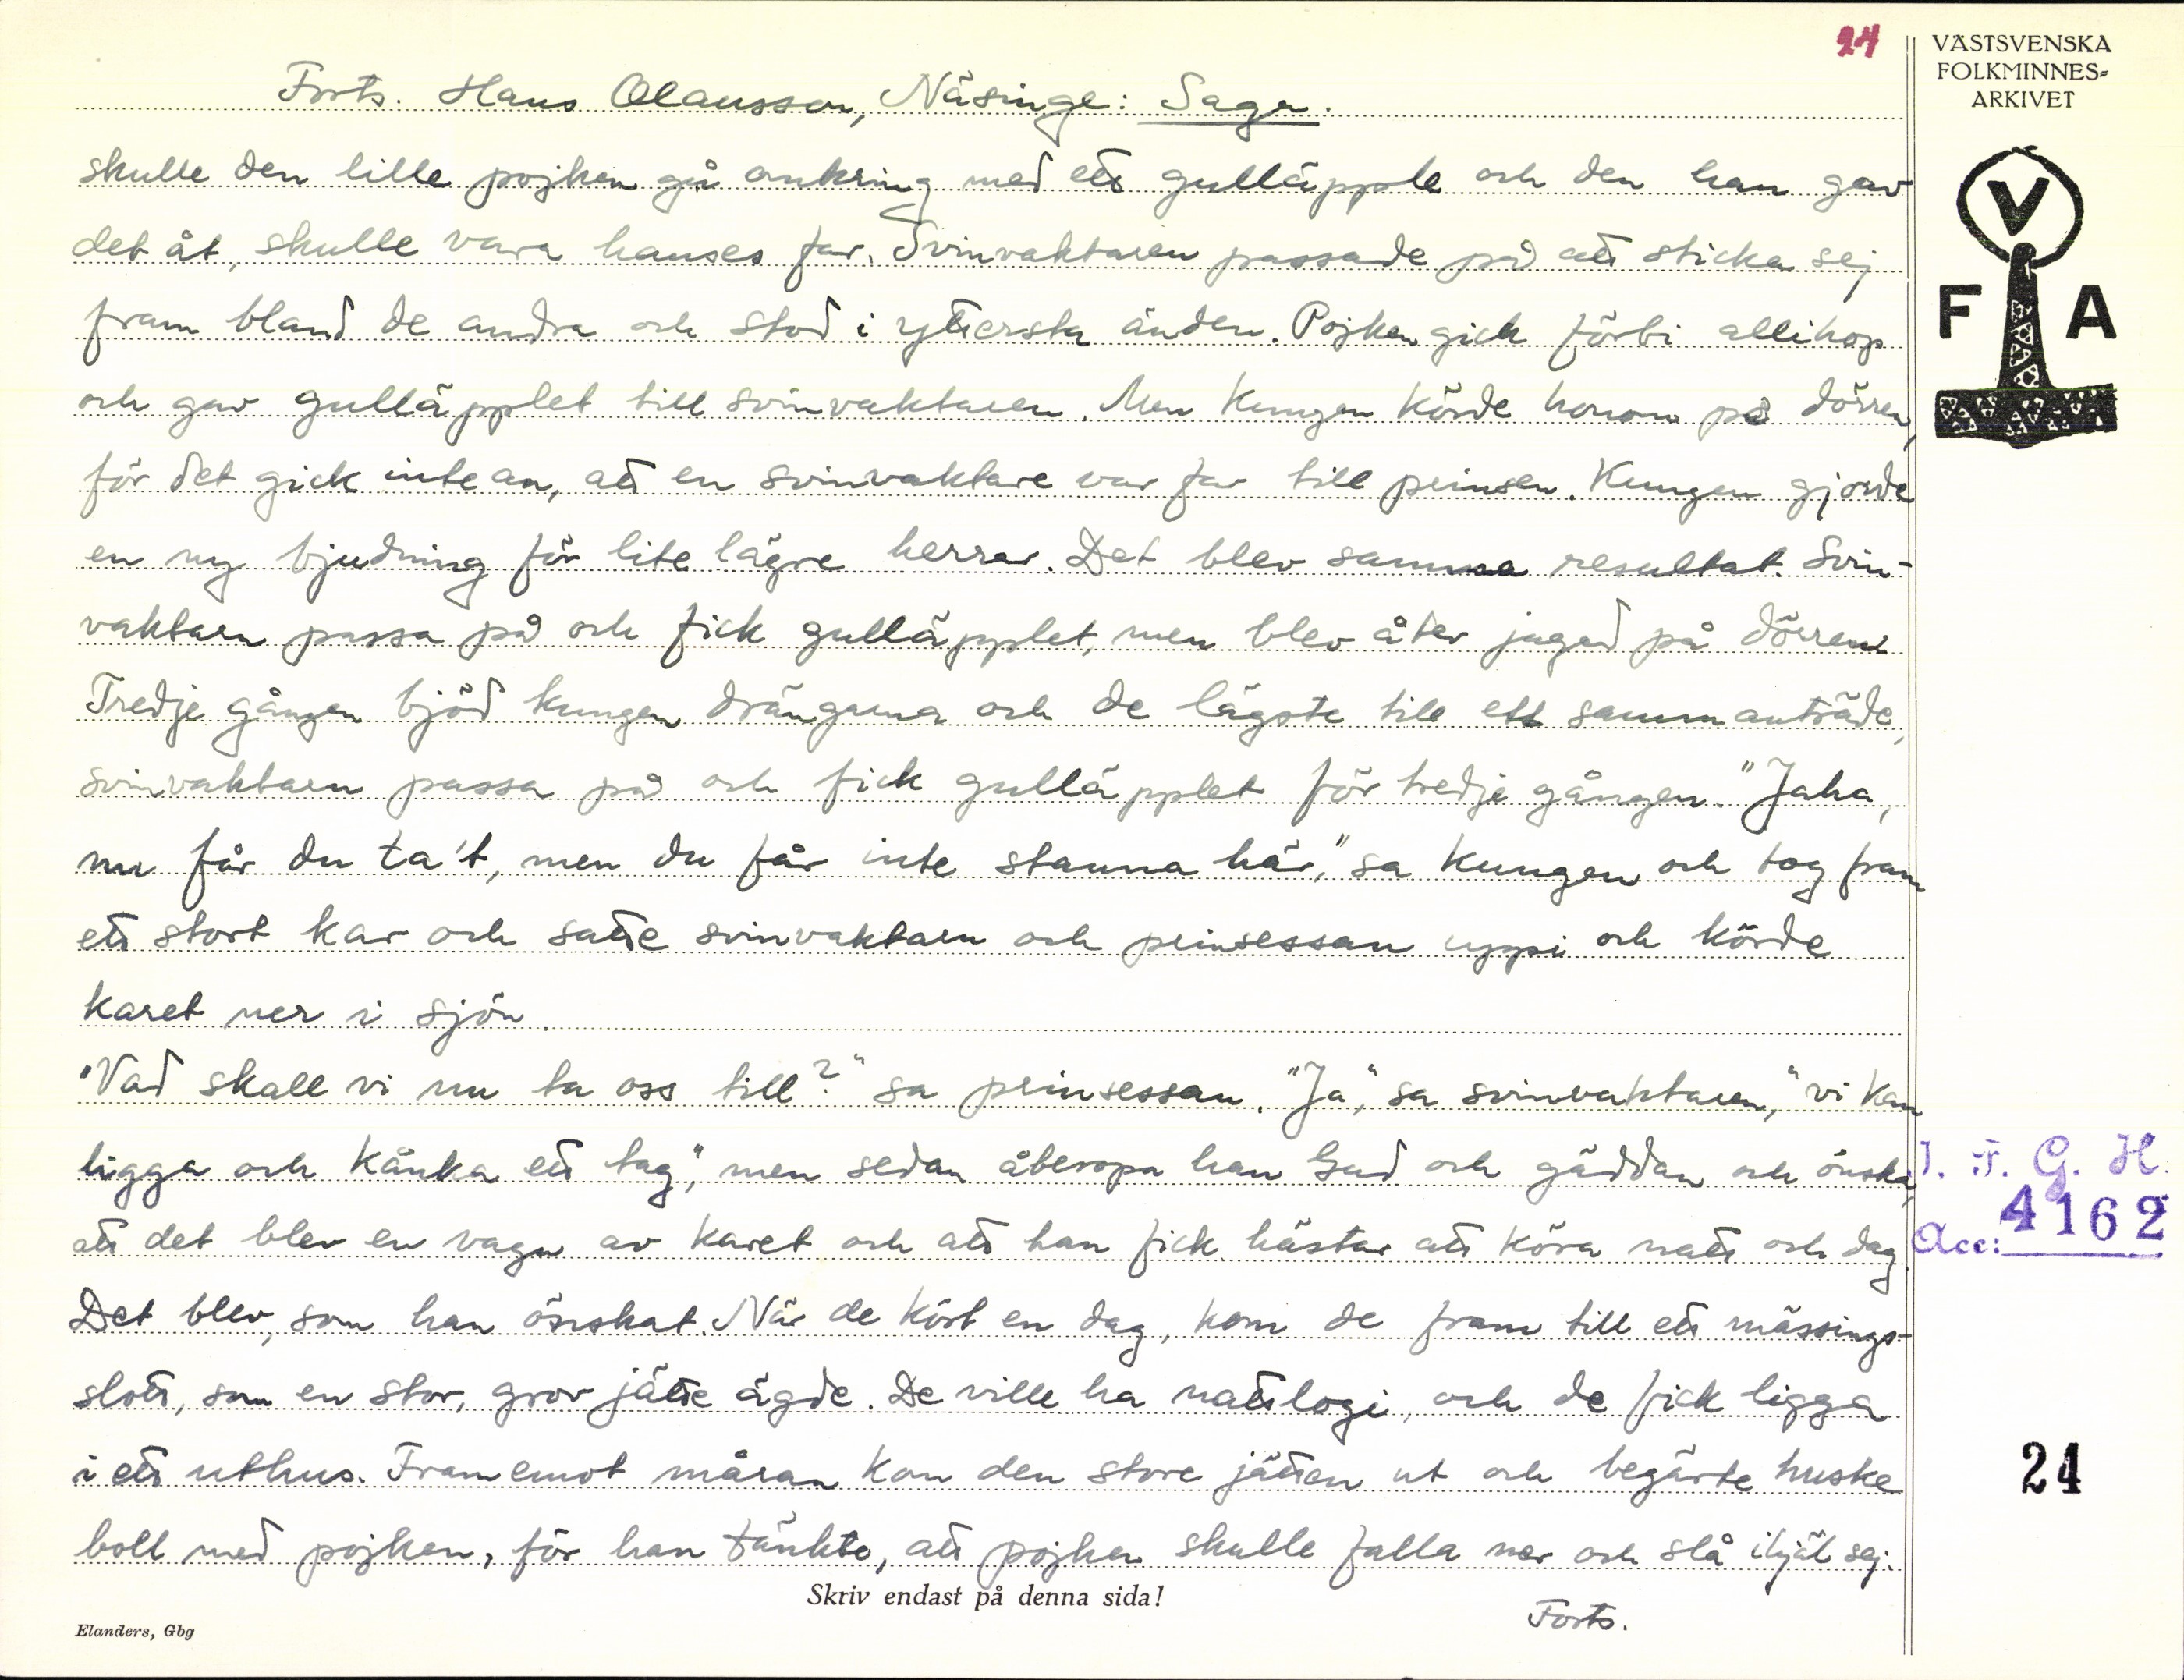 24
VÄSTSVENSKA
FOLKMINNES-
ARKIVET
V
F A
Forts. Hans Olausson, Näsinge: Sagor.
skulle den lille pojken gå omkring med ett gulläpple och den han gav
det åt, skulle vara hanses far. Svinvaktaren passade på att sticka sej
fram bland de andra och stod i yttersta änden. Pojken gick förbi allihop
och gav gulläpplet till svinvaktaren. Men kungen körde honom på dörren,
för det gick inte an, att en svinvaktare var far till prinsen. Kungen gjorde
en ny bjudning för lite lägre herrar. Det blev samma resultat. Svin-
vaktarn passa på och fick gulläpplet, men blev åter jagad på dörren.
Tredje gången bjöd kungen drängarna och de lägste till ett sammanträde,
svinvaktarn passa på och fick gulläpplet för tredje gången. "Jaha,
nu får du ta't, men du får inte stanna här," sa kungen och tog fram
ett stort kar och satte svinvaktarn och prinsessan uppi och körde
karet ner i sjön.
"Vad skall vi nu ta oss till?" sa prinsessan. "Ja", sa svinvaktaren, "vi kan
ligga och kånka ett tag," men sedan åberopa han Gud och gäddan och önska,
att det blev en vagn av karet och att han fick hästar att köra natt och dag.
Det blev, som han önskat. När de kört en dag, kom de fram till ett mässings-
slott, som en stor, grov jätte ägde. De ville ha nattlogi, och de fick ligga
i ett uthus. Framemot måran kom den store jätten ut och begärte huske
boll med pojken, för han tänkte, att pojken skulle falla ner och slå ihjäl sej.
Forts.
I. F. G. H.
Acc: 4162
24
Skriv endast på denna sida!
Elanders, Gbg